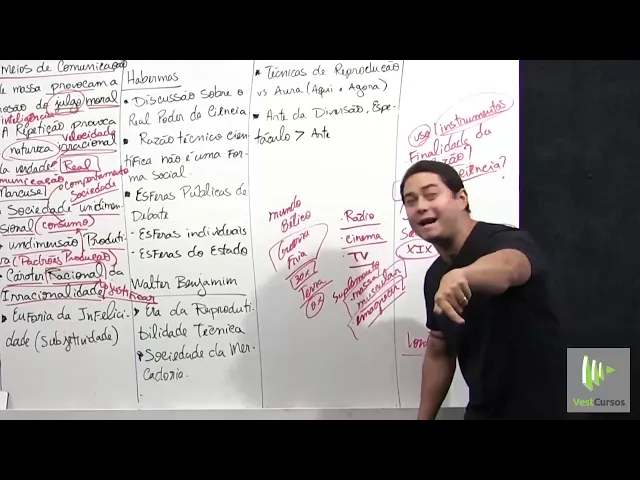 Meios de Comunicação
de massa provocam a
do julgo moral
inteligência
A Repetição provoca
velocidade
natureza irracional
da verdade Real
Marcuse comportamento
Sociedade
Sociedade unidimen-
sional (consumo)
unidimensão Produti-
va (Padrões Produção)
Caráter Racional da
Irracionalidade justificar
Euforia da Infelici-
dade (Subjetividade)
Habermas
Discussão Sobre o
Real Poder da Ciência
Razão técnico cien-
tífica não é uma For-
ma social
Esferas Públicas de
Debate
Esferas individuais
Esferas do Estado
Walter Benjamim
Era da Reproduti-
bilidade Técnica
Sociedade da Mer-
cadoria.
Técnicas de Reprodução
vs Aura (Aqui e Agora)
Arte da Diversão, Espe-
táculo > Arte
mundo
Bélico
Guerra
Fria
Rádio
cinema
TV
Suplemento
massa
muscular
emagrecer
uso instrumentos
Finalidade da
ciência?
XIX
VestCursos